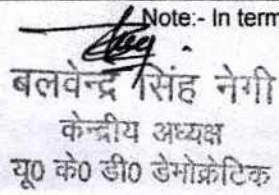 Note:- In term
बलवेन्द्र सिंह नेगी
केन्द्रीय अध्यक्ष
यू0 के0 डी0 डेमोक्रेटिक